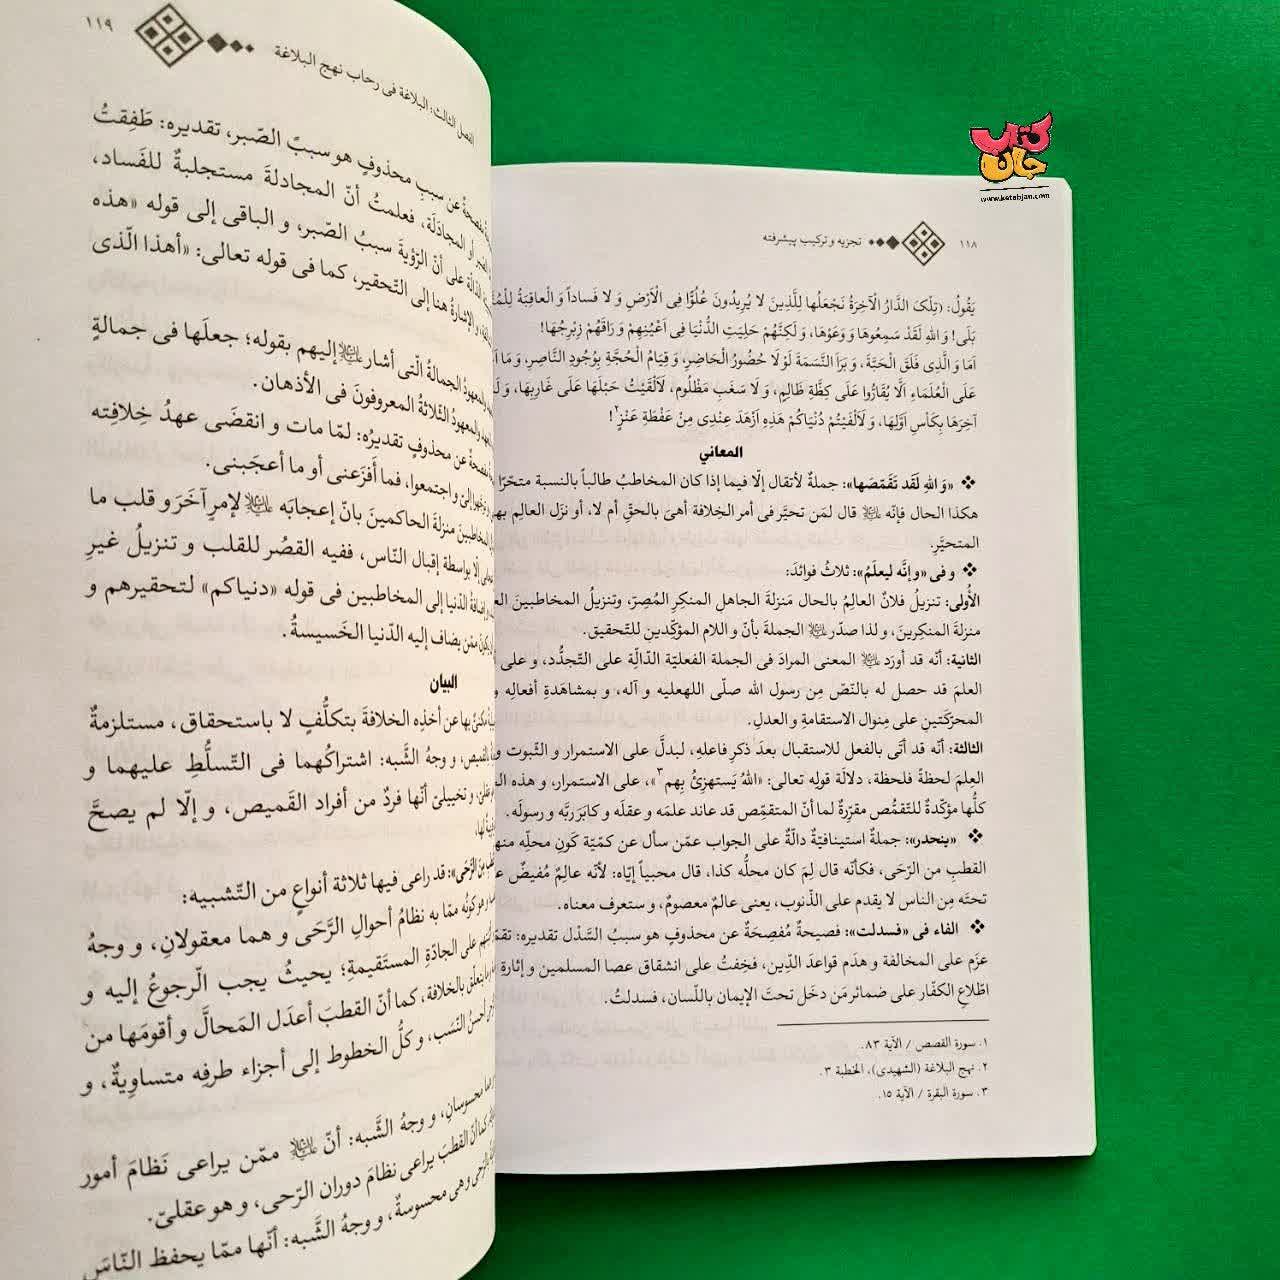 کتاب
جان
www.ketabjan.com
۱۱۸ تجزیه و ترکیب پیشرفته
یَقُولُ: (تِلْکَ الدَّارُ الْآخِرَةُ نَجْعَلُها لِلَّذِینَ لا یُرِیدُونَ عُلُوًّا فِی الْأَرْضِ وَ لا فَساداً وَ الْعاقِبَةُ
بَلَی! وَ اللهِ لَقَدْ سَمِعُوهَا وَ وَعَوْهَا، وَ لَکِنَّهُمْ حَلِیَتِ الدُّنْیَا فِی أَعْیُنِهِمْ وَ رَاقَهُمْ زِبْرِجُهَا!
أَمَا وَ الَّذِی فَلَقَ الْحَبَّةَ، وَ بَرَأَ النَّسَمَةَ لَوْ لَا حُضُورُ الْحَاضِرِ، وَ قِیَامُ الْحُجَّةِ بِوُجُودِ النَّاصِرِ، وَ مَا
عَلَی الْعُلَمَاءِ أَلَّا یُقَارُّوا عَلَی کِظَّةِ ظَالِمٍ، وَ لَا سَغَبِ مَظْلُومٍ، لَأَلْقَیْتُ حَبْلَهَا عَلَی غَارِبِهَا،
آخِرَهَا بِکَأْسِ أَوَّلِهَا، وَ لَأَلْفَیْتُمْ دُنْیَاکُمْ هَذِهِ أَزْهَدَ عِنْدِی مِنْ عَفْطَةِ عَنْزٍ۲!
المعاني
❖ «وَ اللهِ لَقَد تَقَمَّصَها»: جملةٌ لأتقال إلّا فیما إذا کان المخاطبُ طالباً بالنسبة متحیّراً
هکذا الحال فإنّه ﷷ قال لمَن تحیَّر فی أمر الخِلافة أهیَ بالحقّ أم لا، أو نزّل العالِم
المتحیَّر.
❖ و فی «و إنَّه لیعلَمُ»: ثلاثُ فوائدَ:
الأُولی: تنزیلُ فلانٌ العالِمُ بالحال مَنزلةَ الجاهل المنکِرِ المُصِرّ، وتنزیلُ المخاطبینَ
منزلةَ المنکِرینَ، و لذا صدّر الجملةَ بأنّ و اللام المؤکّدینِ للتّحقیق.
الثانیة: أنّه قد أورَد المعنی المرادَ فی الجملة الفعلیّة الدّالّةِ علی التّجدُّد، و علی
العلمَ قد حصل له بالنّصّ مِن رسول الله صلّی اللهعلیه و آله، و بمشاهَدةِ أفعالِه
المحرّکَتینِ علی مِنوال الاستقامةِ و العدلِ.
الثالثة: أنّه قد أتَی بالفعل للاستقبال بعدَ ذکرِ فاعلِهِ، لیدلَّ علی الاستمرار و الثّبوت
العلمَ لحظةً فلحظة، دلالةَ قوله تعالی: «اللهُ یَستهزِئُ بِهم۳»، علی الاستمرار، و هذه
کلُّها مؤکّدةٌ للتّقمُّص مقرِّرةٌ لما أنّ المتقمِّص قد عاند علمَه و عقلَه و کابَرَ ربَّه و رسولَه.
❖ «ینحدر»: جملةٌ استینافیّةٌ دالّةٌ علی الجواب عمّن سأل عن کمّیّة کَونِ محلِّه
القطبِ من الرّحَی، فکأنّه قال لِمَ کان محلُّه کذا، قال مجیباً إیّاه: لأنّه عالِمٌ مُفیضٌ
تحتَه مِن الناس لا یقدم علی الذّنوب، یعنی عالمٌ معصومٌ، و ستعرف معناه.
❖ الفاء فی «فسدلت»: فصیحةٌ مُفصِحَةٌ عن محذوفٍ هو سببُ السَّدْل تقدیره:
عزَم علی المخالفة و هدَم قواعدَ الدّین، فخِفتُ علی انشقاق عصا المسلمین و إثارة
اطّلاعِ الکفّار علی ضمائر مَن دخَل تحتَ الإیمان باللّسان، فسدلتُ.
۱. سورة القصص / الآیة ۸۳.
۲. نهج البلاغة (الشهیدی)، الخطبة ۳.
۳. سورة البقرة / الآیة ۱۵.
الفصل الثالث: البلاغة فی رحاب نهج البلاغة ۱۱۹
عن سببٍ محذوفٍ هو سببُ الصّبر، تقدیره: طَفِقتُ
الصبر أو المجادَلَة، فعلمتُ أنّ المجادلةَ مستجلبةٌ للفَساد،
علی أنّ الرّؤیةَ سببُ الصّبر، و الباقی إلی قوله «هذه
و الإشارةُ هنا إلی التّحقیر، کما فی قوله تعالی: «أهذا الّذی
و المعهودُ الجمالةُ الّتی أشار إلیهم بقوله؛ جعلَها فی جمالةٍ
و المعهودُ الثّلاثةُ المعروفونَ فی الأذهان.
عن محذوفٍ تقدیرُه: لمّا مات و انقضَی عهدُ خِلافتِه
و اجتمعوا، فما أَفزَعنی أو ما أعجَبنی.
المخاطَبینَ منزلةَ الحاکمینَ بانّ إعجابَه لإمرٍ آخَرَ و قلب ما
إلّا بواسطة إقبال النّاس، ففیه القصْر للقلب و تنزیلُ غیرِ
إضافةُ الدّنیا إلی المخاطبین فی قوله «دنیاکم» لتحقیرهم و
ممّن یضاف إلیه الدّنیا الخَسیسةُ.
البیان
بها عن أخذِه الخلافةَ بتکلُّفٍ لا باستحقاق، مستلزمةٌ
و وجهُ الشَّبه: اشتراکُهما فی التّسلُّطِ علیهما و
و تخییلیّ أنّها فردٌ من أفراد القَمیص، و إلّا لم یصحَّ
مِنَ الرَّحَی»: قد راعی فیها ثلاثةَ أنواعٍ من التّشبیه:
و هو کونُه ممّا به نظامُ أحوالِ الرَّحَی و هما معقولانِ، و وجهُ
علی الجادّةِ المستَقیمةِ؛ بحیثُ یجب الرّجوعُ إلیه و
بالخلافة، کما أنّ القطبَ أعدَل المَحالّ و أقومَها من
أحسنُ النّسَب، و کلُّ الخطوط إلی أجزاء طرفِه متساوِیةٌ، و
محسوسانِ، و وجهُ الشَّبه: أنّ ممّن یراعی نَظامَ أمور
کما أنّ القطبَ یراعی نظامَ دوران الرّحی، و هو عقلیّ.
الرّحی و هی محسوسةٌ، و وجهُ الشَّبه: أنّها ممّا یحفظ النّاسَ